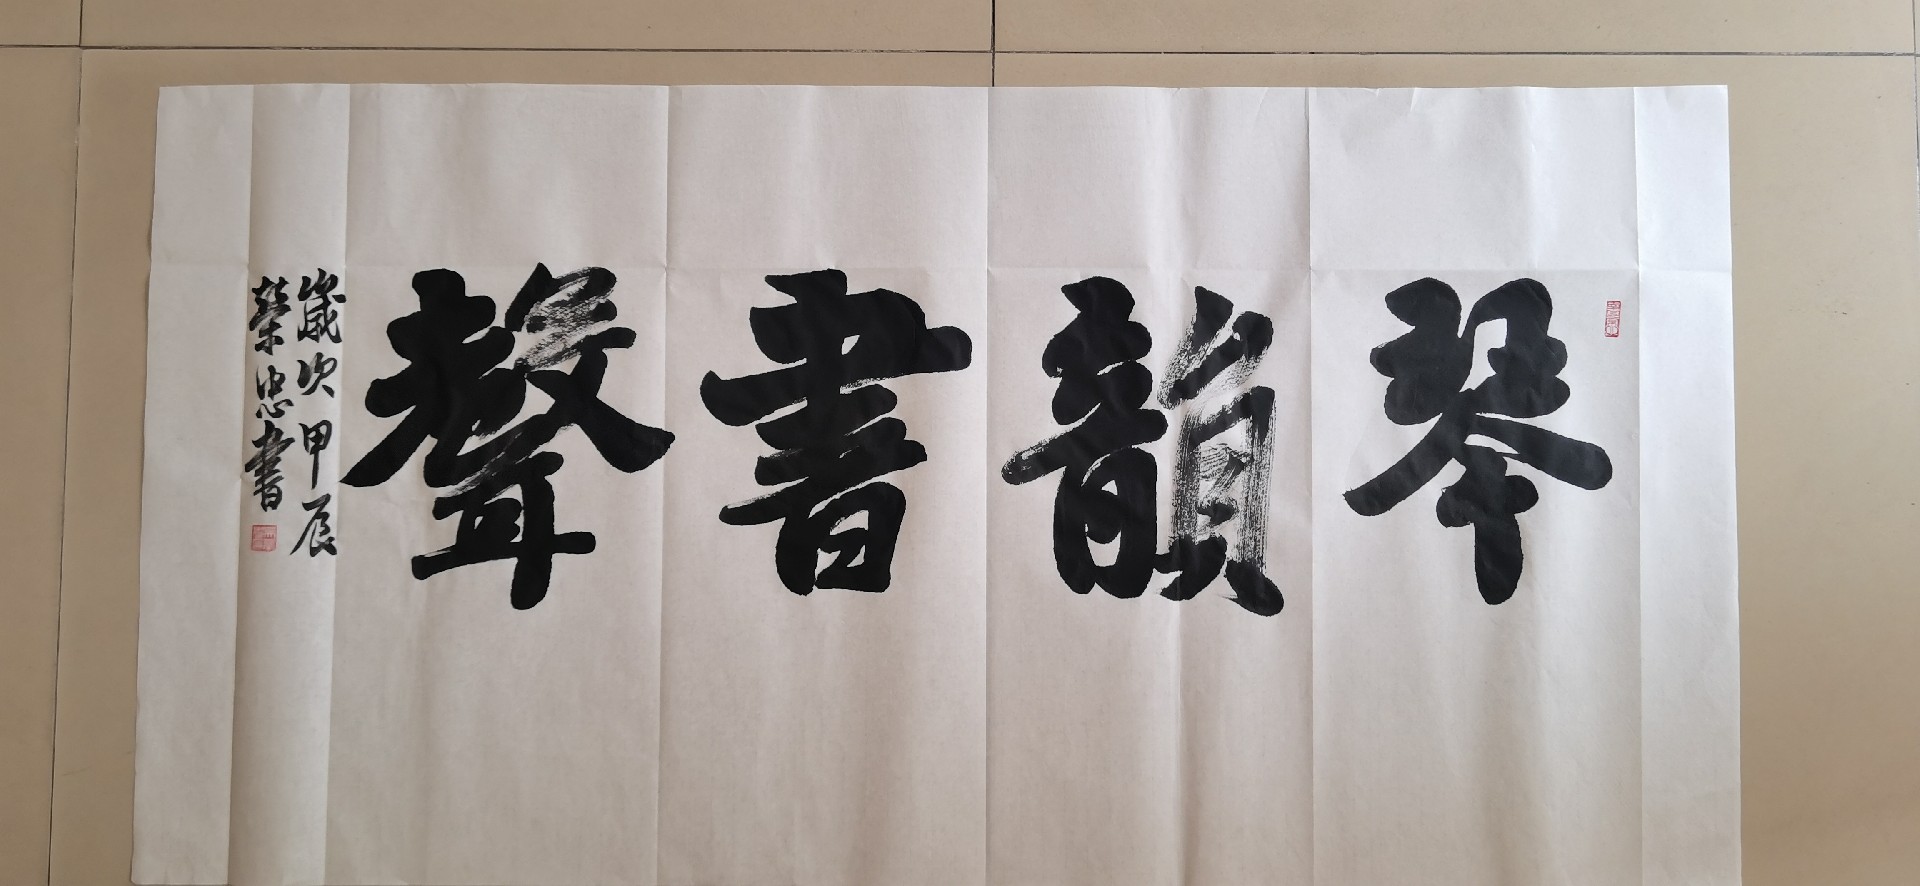 琴韻書聲
歲次甲辰
榮忠書